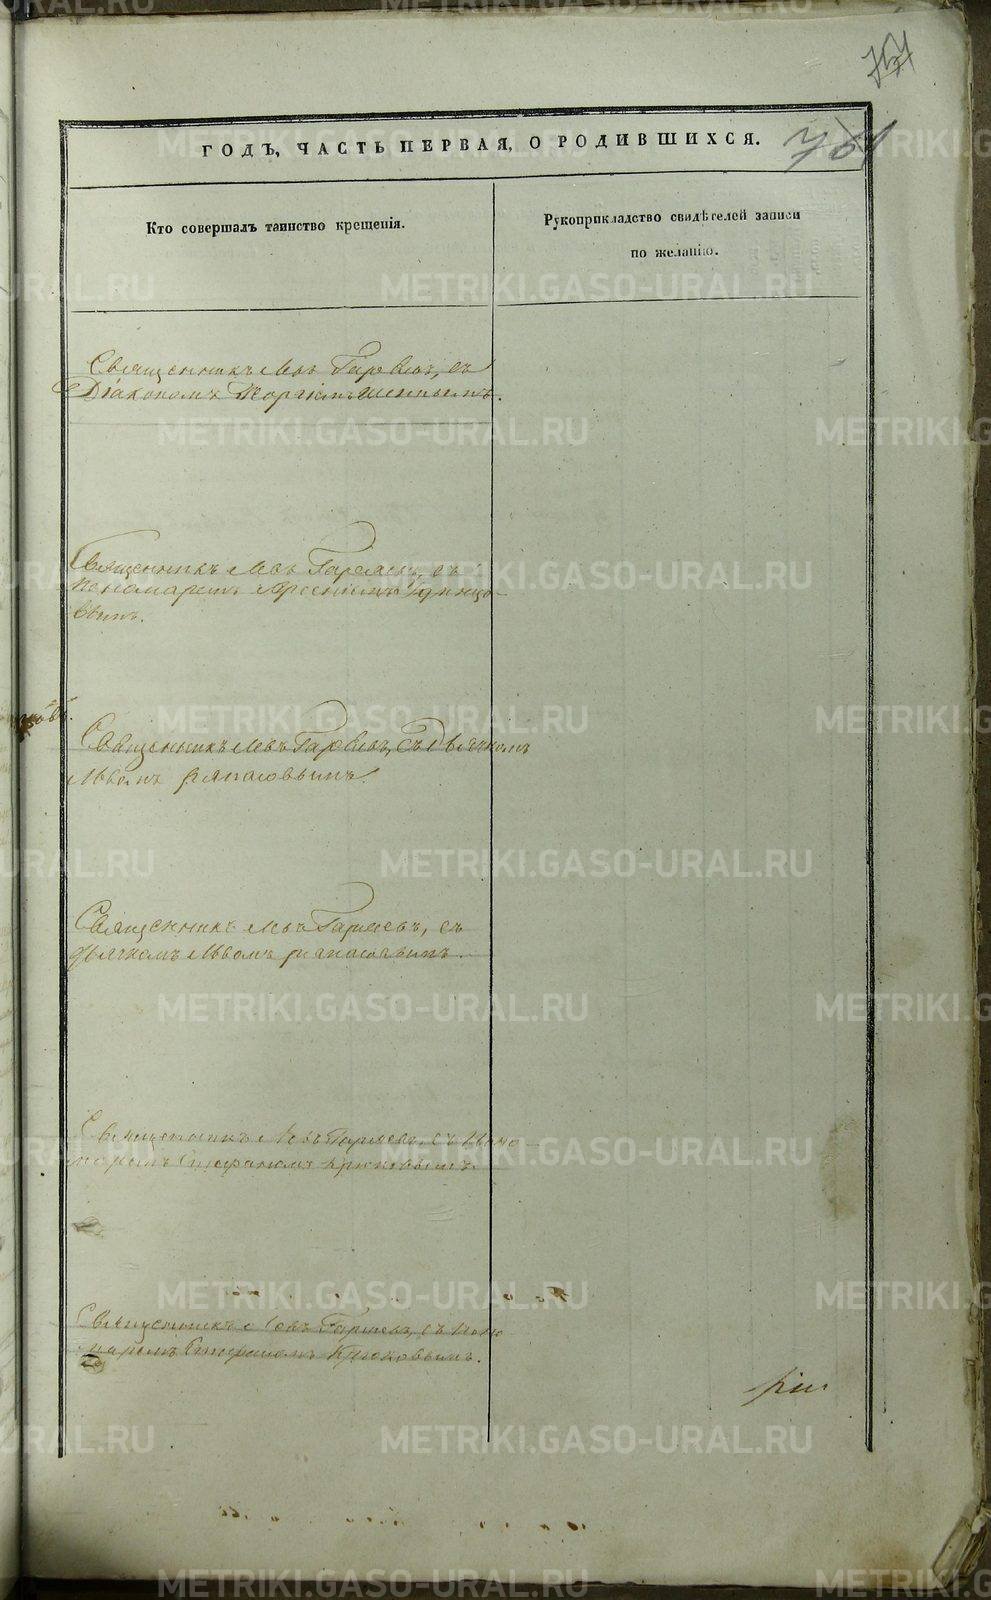 761
ГОДЪ, ЧАСТЬ ПЕРВАЯ, О РОДИВШИХСЯ.
Кто совершалъ таинство крещенія.
Рукоприкладство свидѣтелей записи
по желанію.
Священникъ Левъ Гаряевъ, съ
Діакономъ
Священникъ Левъ Гаряевъ, съ
Пономаремъ Арсеніемъ Удинцо-
вымъ.
Священникъ Левъ Гаряевъ, съ Дьячкомъ
Львомъ
Священникъ Левъ Гаряевъ, съ
Дьячкомъ Львомъ
Священникъ Левъ Гаряевъ, съ Поно-
маремъ Стефаномъ Крюковымъ.
Священникъ Левъ Гаряевъ, съ Поно
маремъ Стефаномъ Крюковымъ.
METRIKI.GASO-URAL.RU